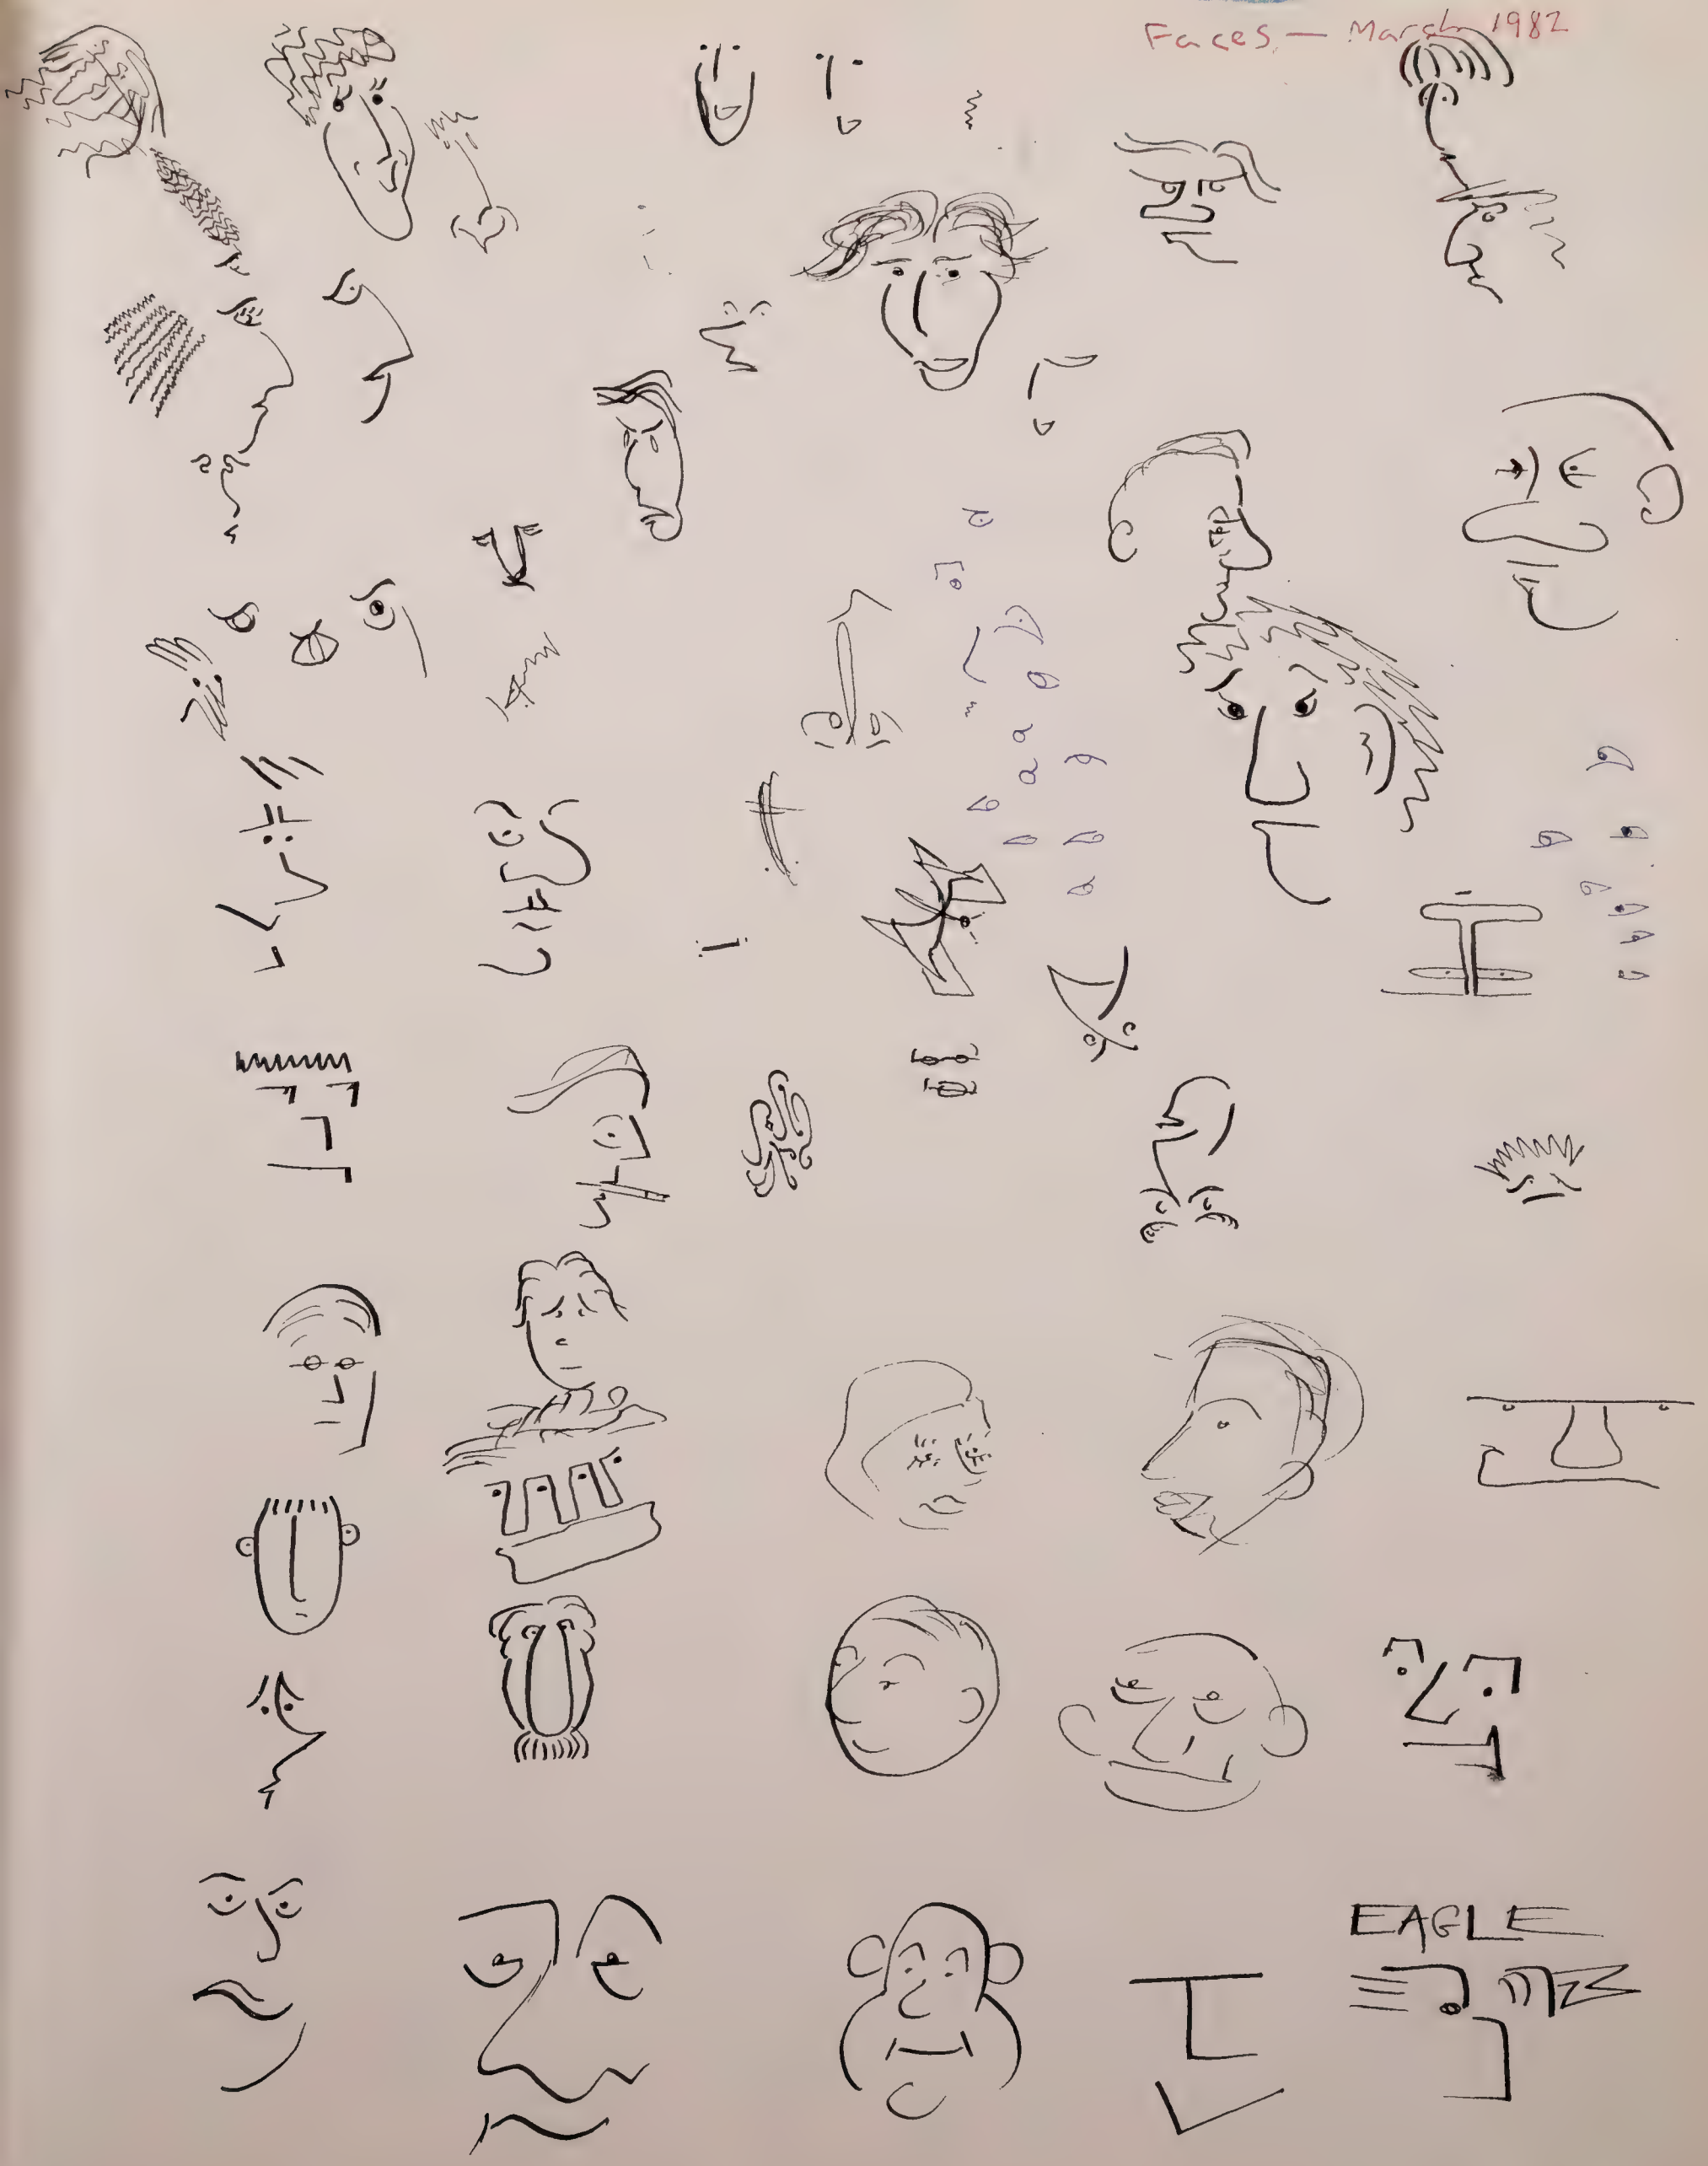 Faces — March 1982
EAGLE